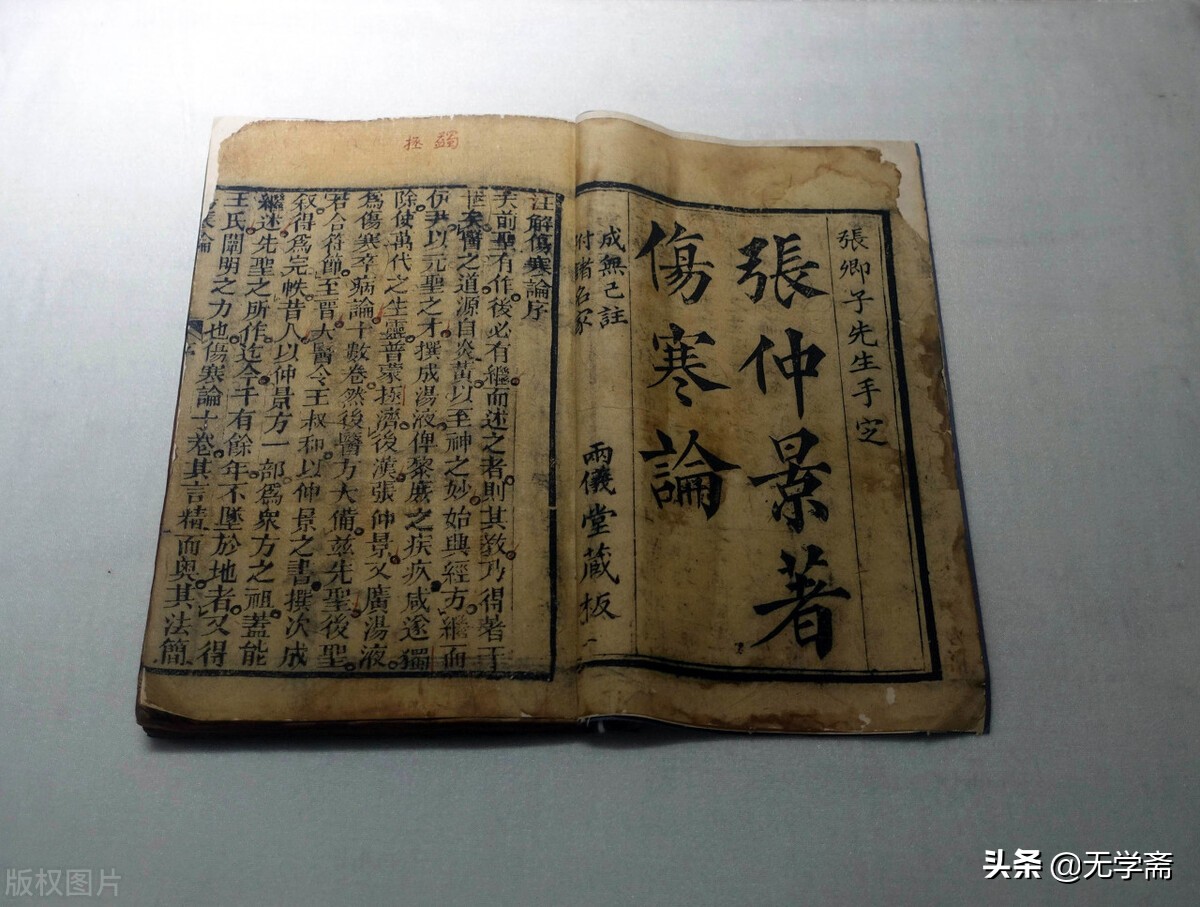 張卿子先生手㝎
張仲景著
傷寒論
成無己註
附諸名家
兩儀堂藏板
蠲 拯
注解傷寒論序
夫前聖有作。後必有繼而述之者。則其教乃得著于
世矣。醫之道源自炎黃。以至神之妙。始興經方。繼而
伊尹以元聖之才。撰成湯液。俾黎庶之疾疚。咸遂獨
除。使萬代之生靈。普蒙極濟。後漢張仲景。又廣湯液。
爲傷寒卒病論十數卷。然後醫方大備。茲先聖後聖。
若合符節。至晉大醫令王叔和。以仲景之書。撰次成
叙。得爲完帙。昔人以仲景方一部。爲衆方之祖。蓋能
繼述先聖之所作。迄今千有餘年。不墜於地者。又得
王氏闡明之力也。傷寒論十卷。其言精而奧。其法簡
版权图片
头条 @无学斋